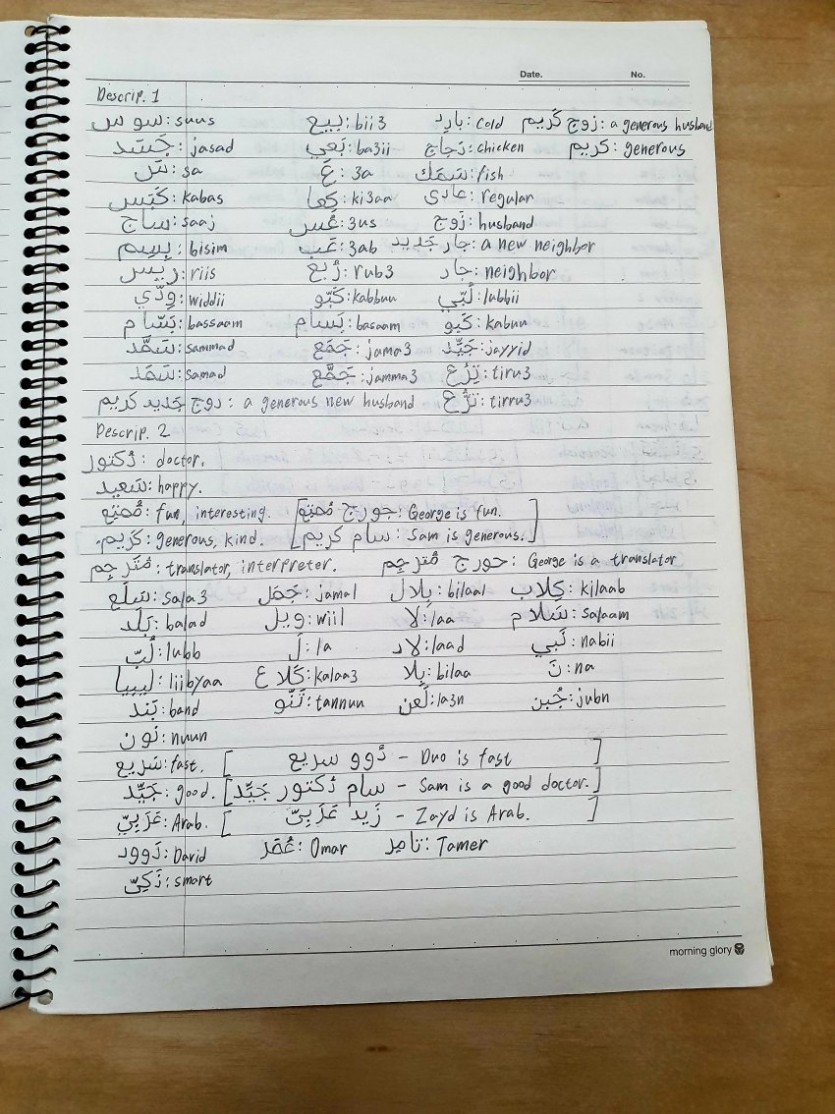 Date. No.
Descrip. 1
سوس: suus بيع: bii3 بارِد: cold زوج كَريم: a generous husband
جَسَد: jasad بَعي: ba3ii دَجاج: chicken كَريم: generous
سَـ: sa عَ: 3a سَمَك: fish
كَبَس: kabas كِعا: ki3aa عادي: regular
ساج: saaj عُس: 3us زَوج: husband
بِسِم: bisim عَب: 3ab جار جَديد: a new neighbor
ريس: riis رُبع: rub3 جار: neighbor
وِدّي: widdii كَبّو: kabbuu لُبّي: lubbii
بَسّام: bassaam بَسام: basaam كَبو: kabuu
سَمَّد: sammad جَمَع: jama3 جَيِّد: jayyid
سَمَد: samad جَمَّع: jamma3 تِرُع: tiru3
زوج جَديد كَريم: a generous new husband تِرُّع: tirru3
Descrip. 2
دُكتور: doctor.
سَعيد: happy.
مُمتِع: fun, interesting. [جورج مُمتِع: George is fun.]
كَريم: generous, kind. [سام كَريم: Sam is generous.]
مُتَرجِم: translator, interpreter. جورج مُترجِم: George is a translator
سَلَع: sala3 جَمَل: jamal بِلال: bilaal كِلاب: kilaab
بَلَد: balad ويل: wiil لا: laa سَلام: salaam
لُبّ: lubb لَ: la لاد: laad نَبي: nabii
ليبيا: liibyaa كَلاع: kalaa3 بِلا: bilaa نَ: na
بَند: band تَنّو: tannuu لَعن: la3n جُبن: jubn
نون: nuun
سَريع: fast. [دُوو سَريع - Duo is fast]
جَيِّد: good. [سام دُكتور جَيِّد - Sam is a good doctor.]
عَرَبيّ: Arab. [زَيد عَرَبيّ - Zayd is Arab.]
دَوود: David عُمَر: Omar تامِر: Tamer
ذَكِيّ: smart
morning glory